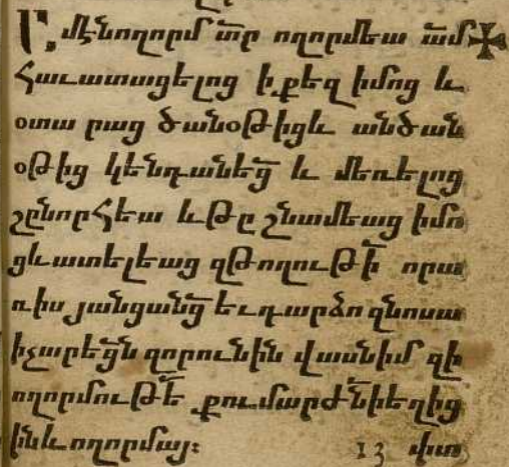 Ո՟մէնողորմ տ՟ր ողորմեա ա՟մ
Հաւատացելոց ի քեզ իմոց և
օտա րաց ծանօթիցև անծան
օթից կենդանեց՟ և մեռելոց
շընորՀեա ևթը շնամեաց իմո
ցևատելեաց զթողութի՟ որա
ռիս յանցանց՟ եւդարձո զնոսա
իչարեց՟ն զորունին վասնիմ զի
ողորմութե՟ քումարժ՟նիեղից
ինևողորմայ։ 13 փա